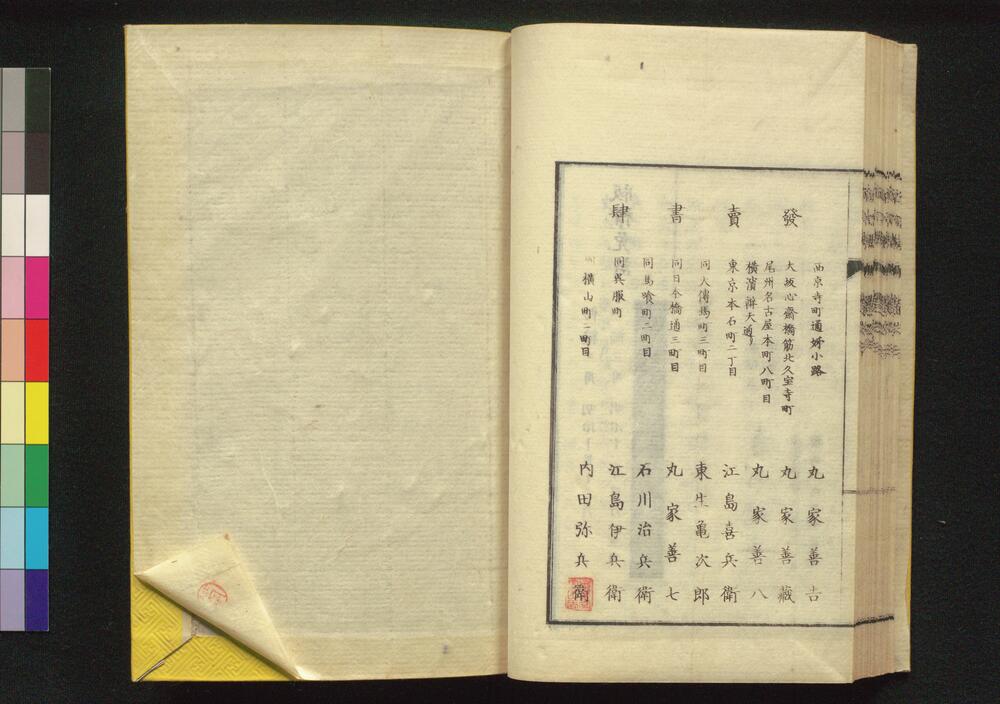 發賣書肆
西京寺町通姉小路 丸家善吉
大坂心齋橋筋北久宝寺町 丸家善藏
尾州名古屋本町八町目
横濱辨天通り 丸家善八
東京本石町二丁目 江島喜兵衛
同大傳馬町三町目 東生亀次郎
同日本橋通三町目 丸家善七
同馬喰町二町目 石川治兵衛
同呉服町 江島伊兵衛
同横山町一町目 内田弥兵衛